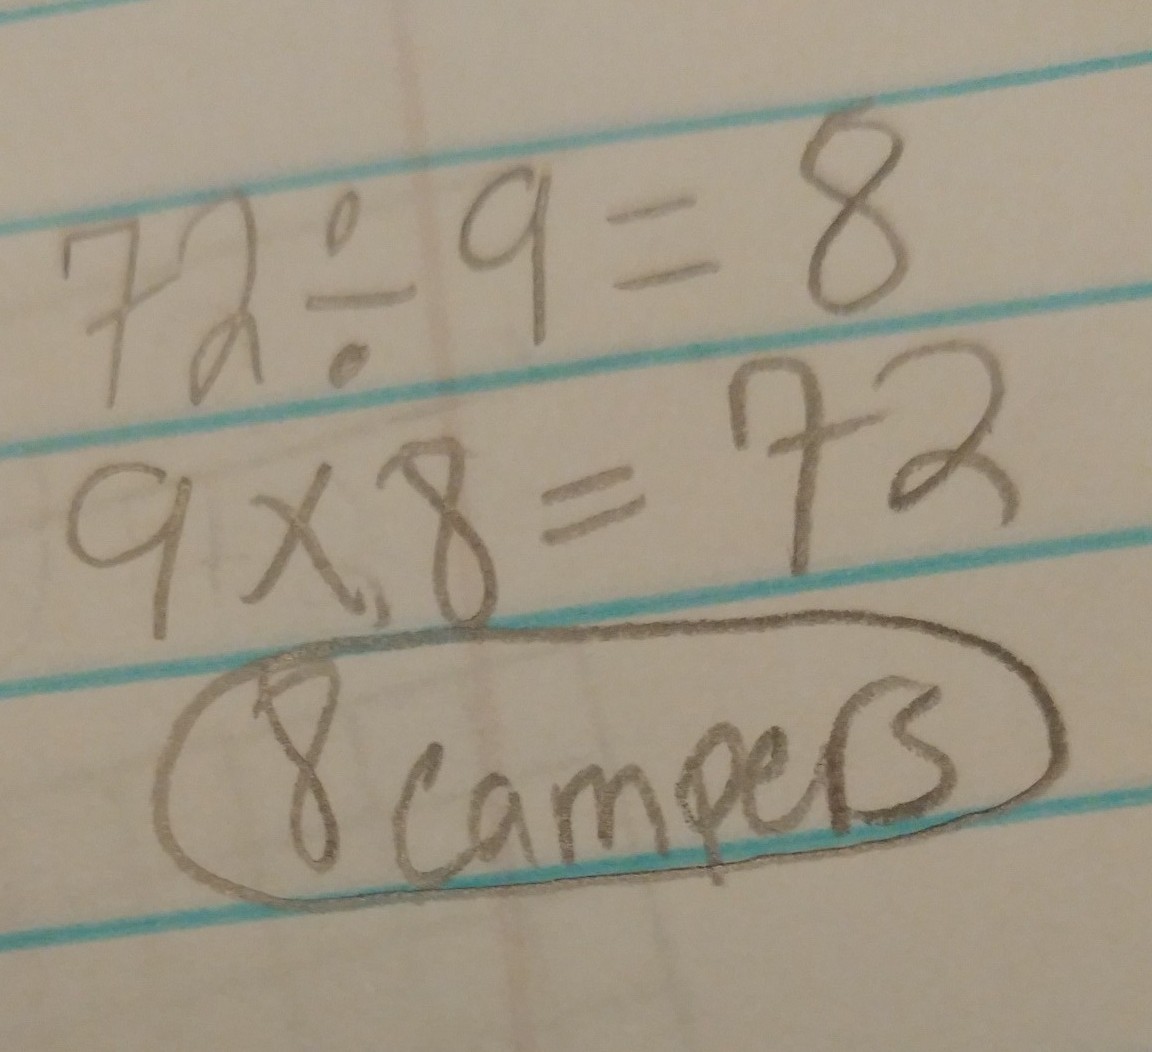 72÷9=8
9×8=72
8 campers